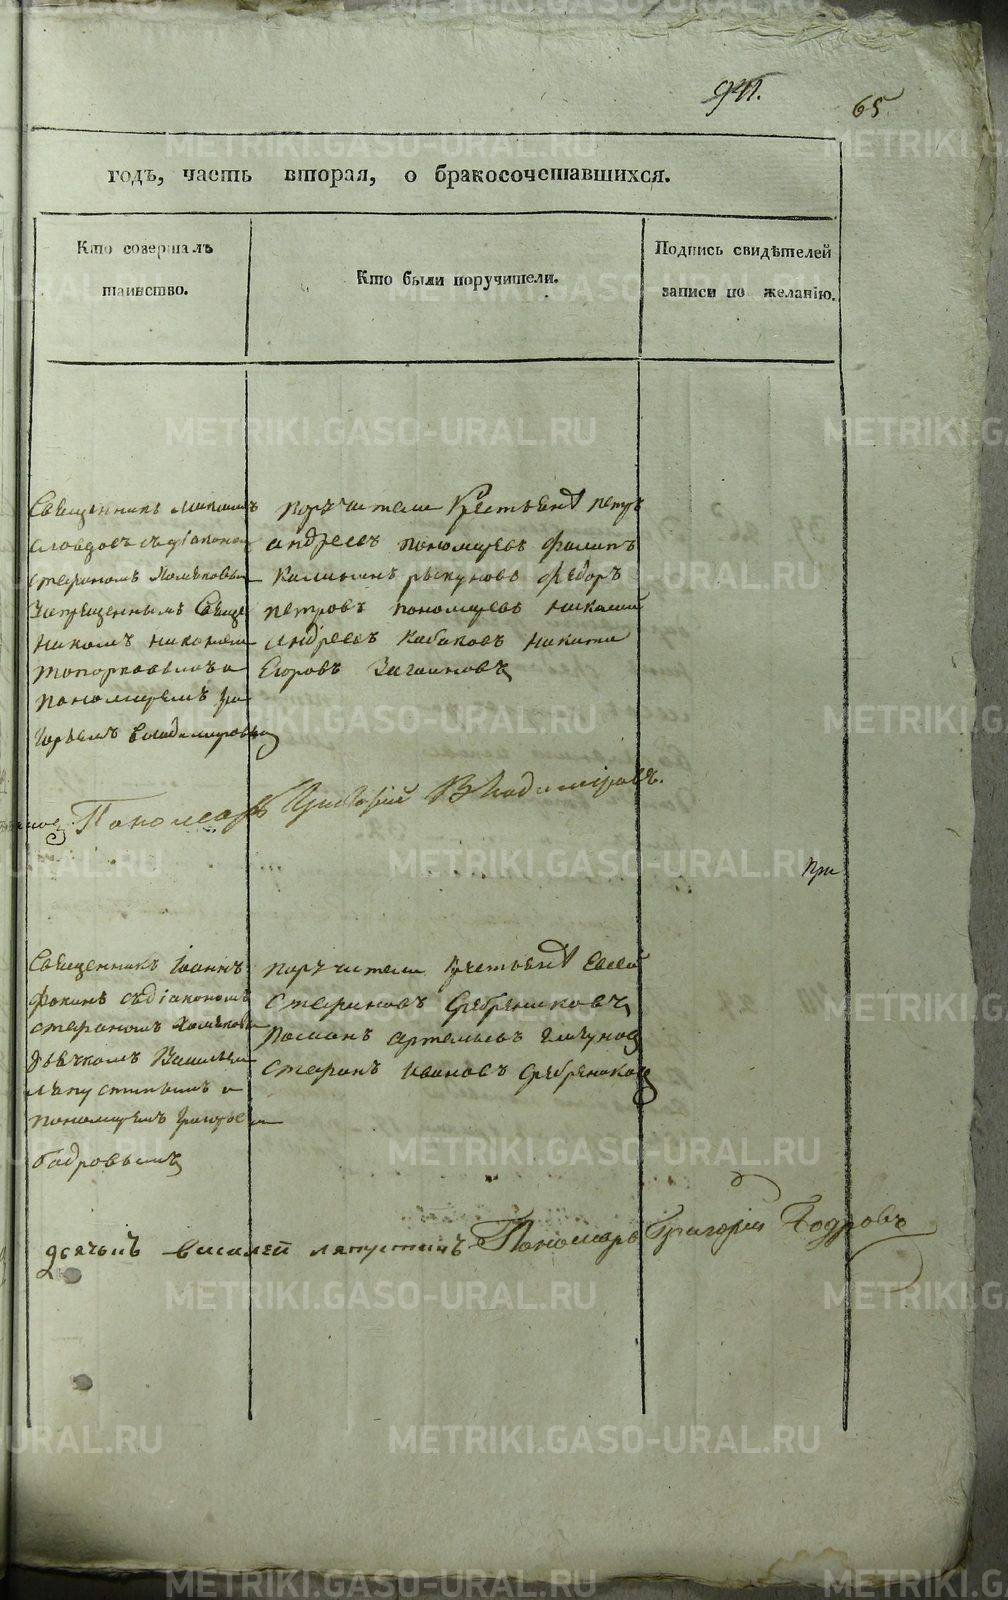 941.
65
годъ, часть вторая, о бракосочетавшихся.
Кто совершалъ
таинство.
Кто были поручители.
Подпись свидѣтелей
записи по желанію.
Священникъ
словцовъ съ діакономъ
стефаномъ Хомяковым
Запрещеннымъ Свяще
никомъ никоном
топорковымъ и
пономаремъ гри
горьемъ владимировымъ
поручители Крестьяня петръ
андреевъ пономаревъ филипъ
калининъ рыкуновъ федоръ
петровъ пономаревъ николай
андреевъ кабаковъ никита
Егоровъ Загаиновъ
Пономарь Григорій Владиміровъ.
При
Священникъ Іоаннъ
фокинъ съ діакономъ
стефаномъ Хомяковы
дьячкомъ Васильем
лапустинымъ и
пономаремъ григорье
бодровымъ
поручители крестьяня Евсей
стефановъ Серебряниковъ
романъ артемьевъ
стефанъ ивановъ Серебряниковъ
дьячокъ василей лапустинъ Пономарь Григорій Бодровъ
METRIKI.GASO-URAL.RU